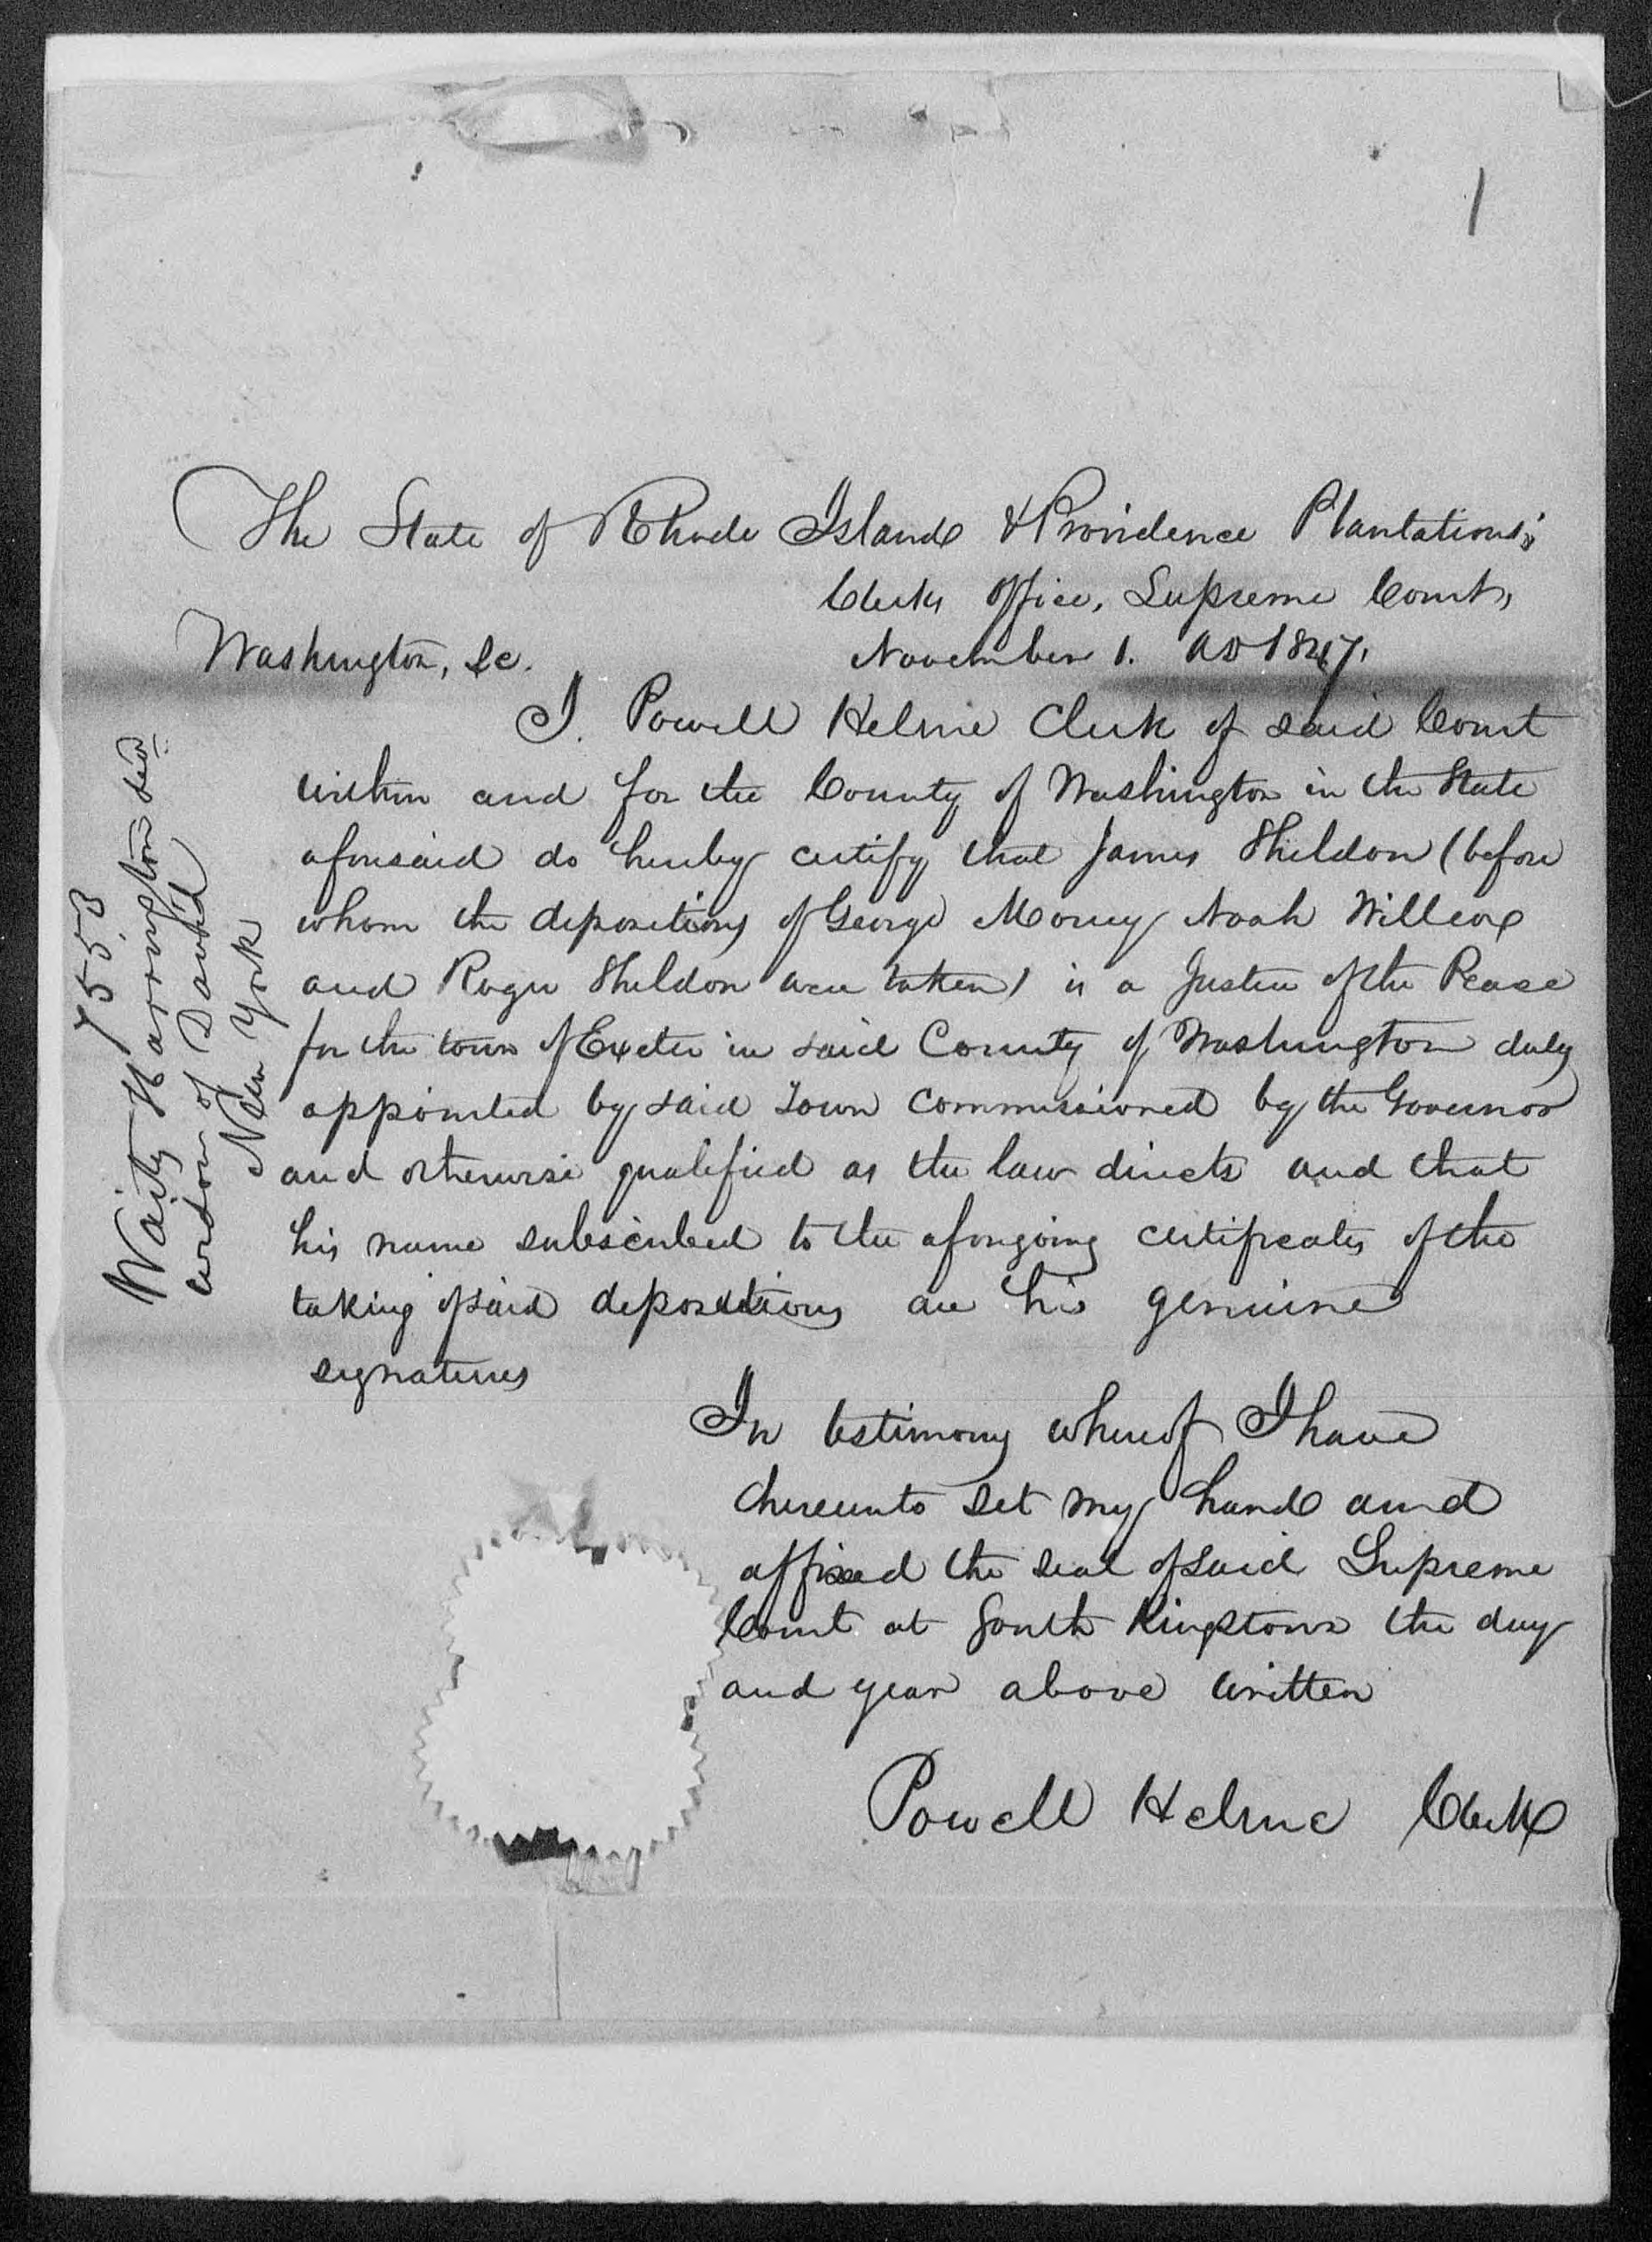 1
The State of Rhode Island & Providence Plantations;
Clerks office, Supreme Court,
Washington, Sc. November 1. AD 1847.
I. Powell Helme Clerk of said Court
within and for the County of Washington in the State
aforesaid do hereby certify that James Sheldon (before
whom the depositions of George Morey Noah Willcox
and Roger Sheldon were taken) is a Justice of the Peace
for the town of Exeter in said County of Washington duly
appointed by said Town Commissioned by the Governor
and otherwise qualified as the law directs and that
his name subscribed to the aforegoing certificates of the
taking of said depositions are his genuine
signatures
In testimony whereof I have
hereunto set my hand and
affixed the seal of said Supreme
Court at South Kingstown the day
and year above written
Powell Helme Clerk
7553
Waity Harrington decd
widow of David
New York